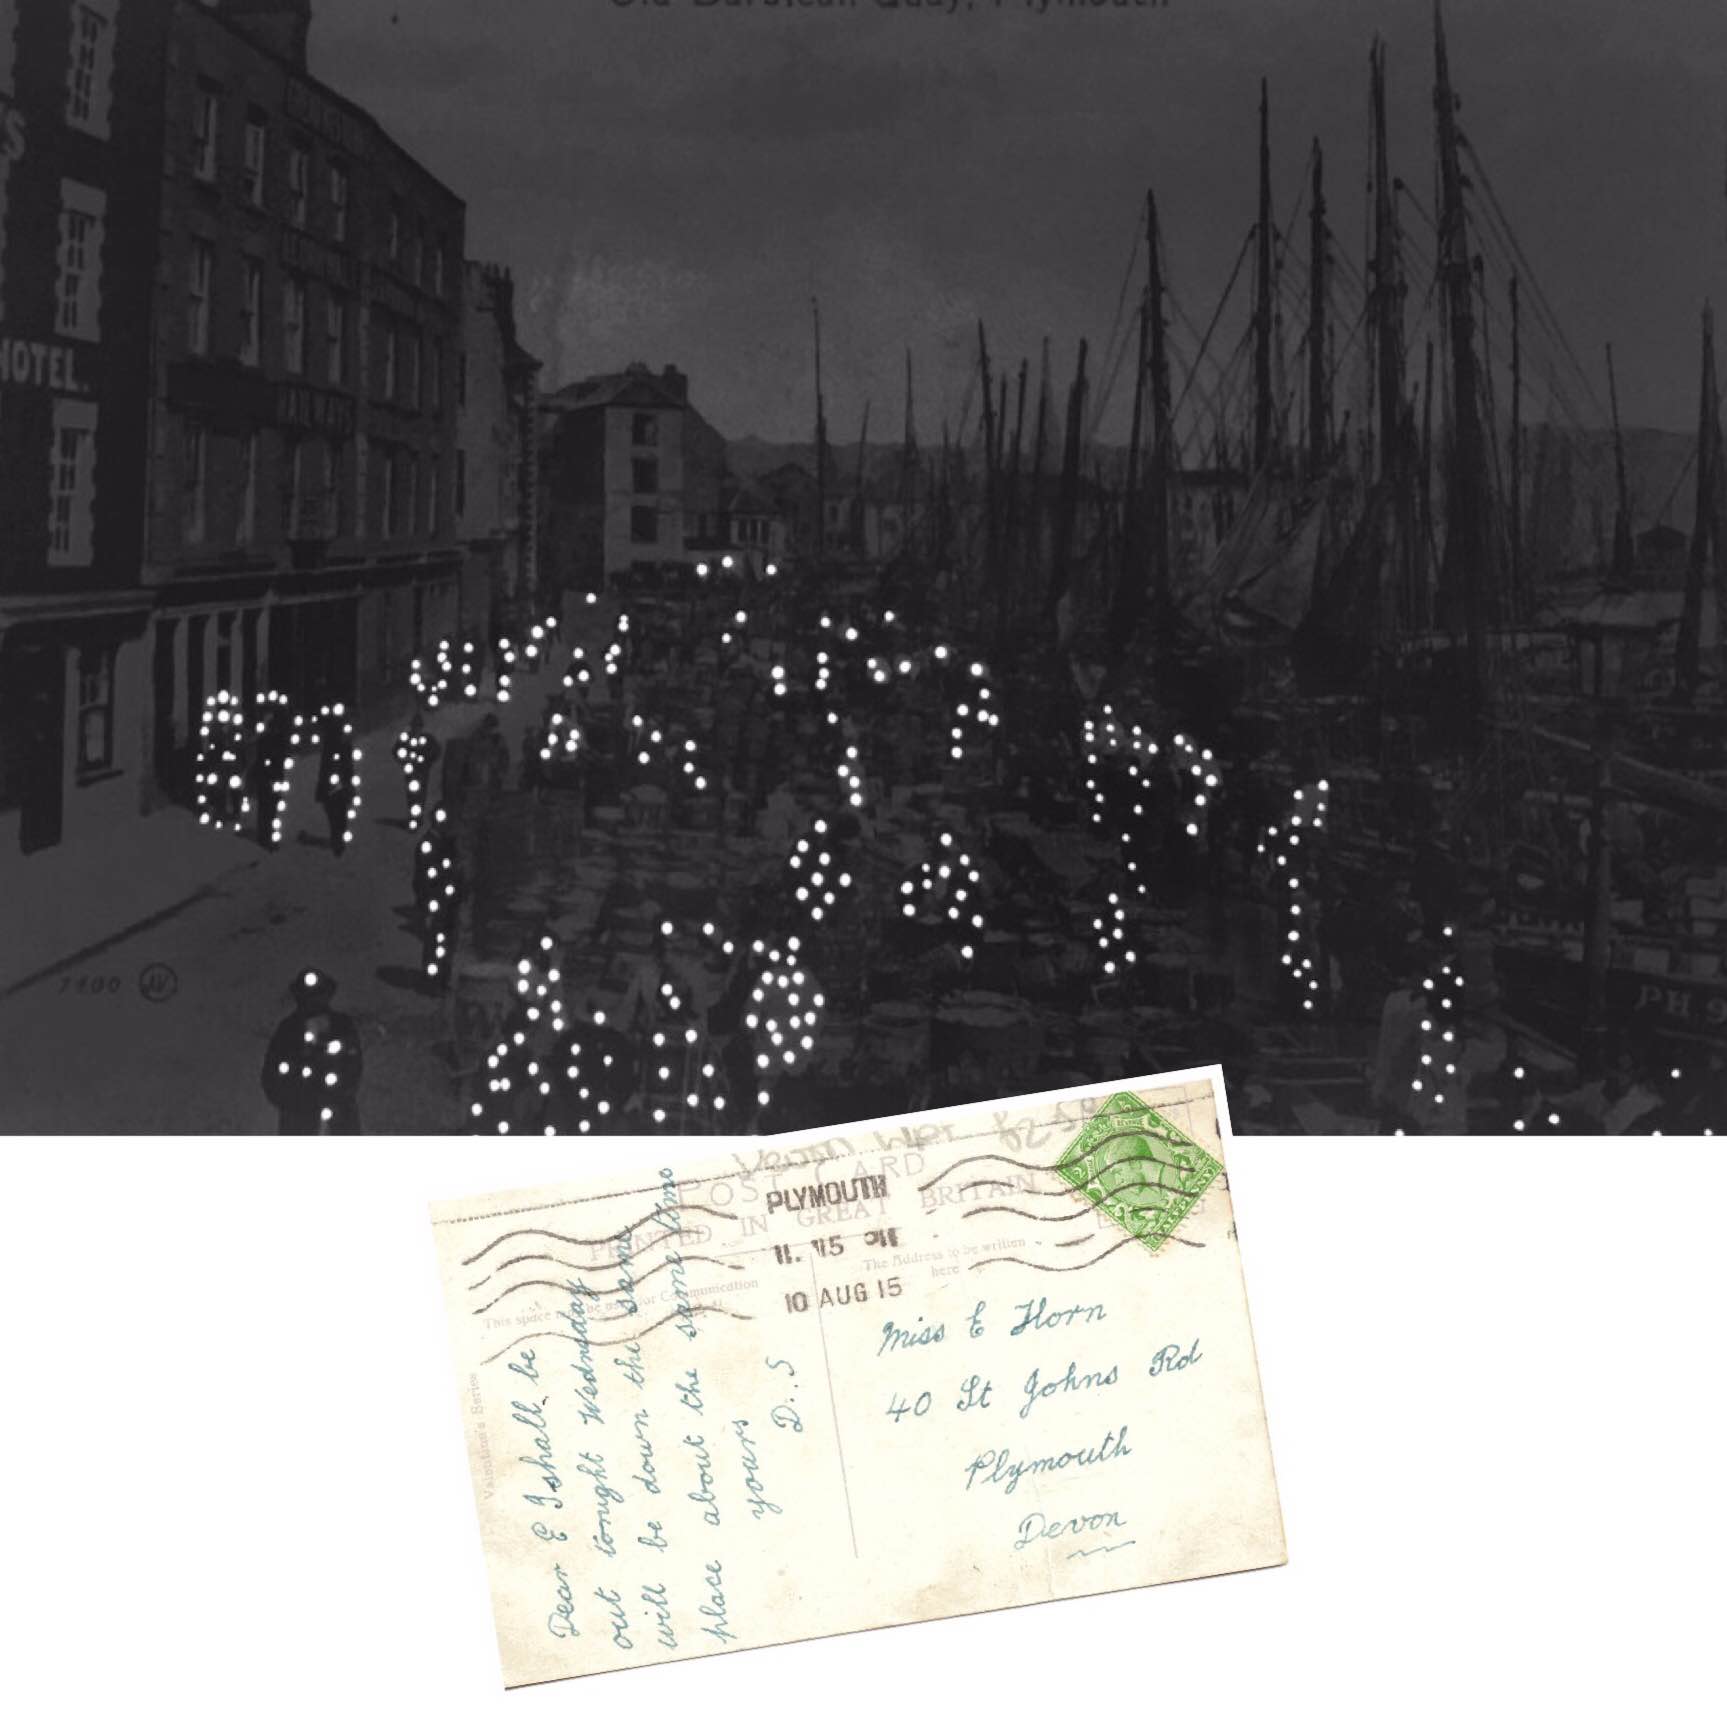 Old Barbican Quay, Plymouth
HOTEL.
7400 JV
PH 9
POST CARD
PRINTED IN GREAT BRITAIN
PLYMOUTH
11. 15 PM
10 AUG 15
The Address to be written
here
Valentine's Series
Dear E I shall be
out tonight Wednesday
will be down the same
place about the same time
yours
D..S
Miss E Horn
40 St Johns Rd
Plymouth
Devon